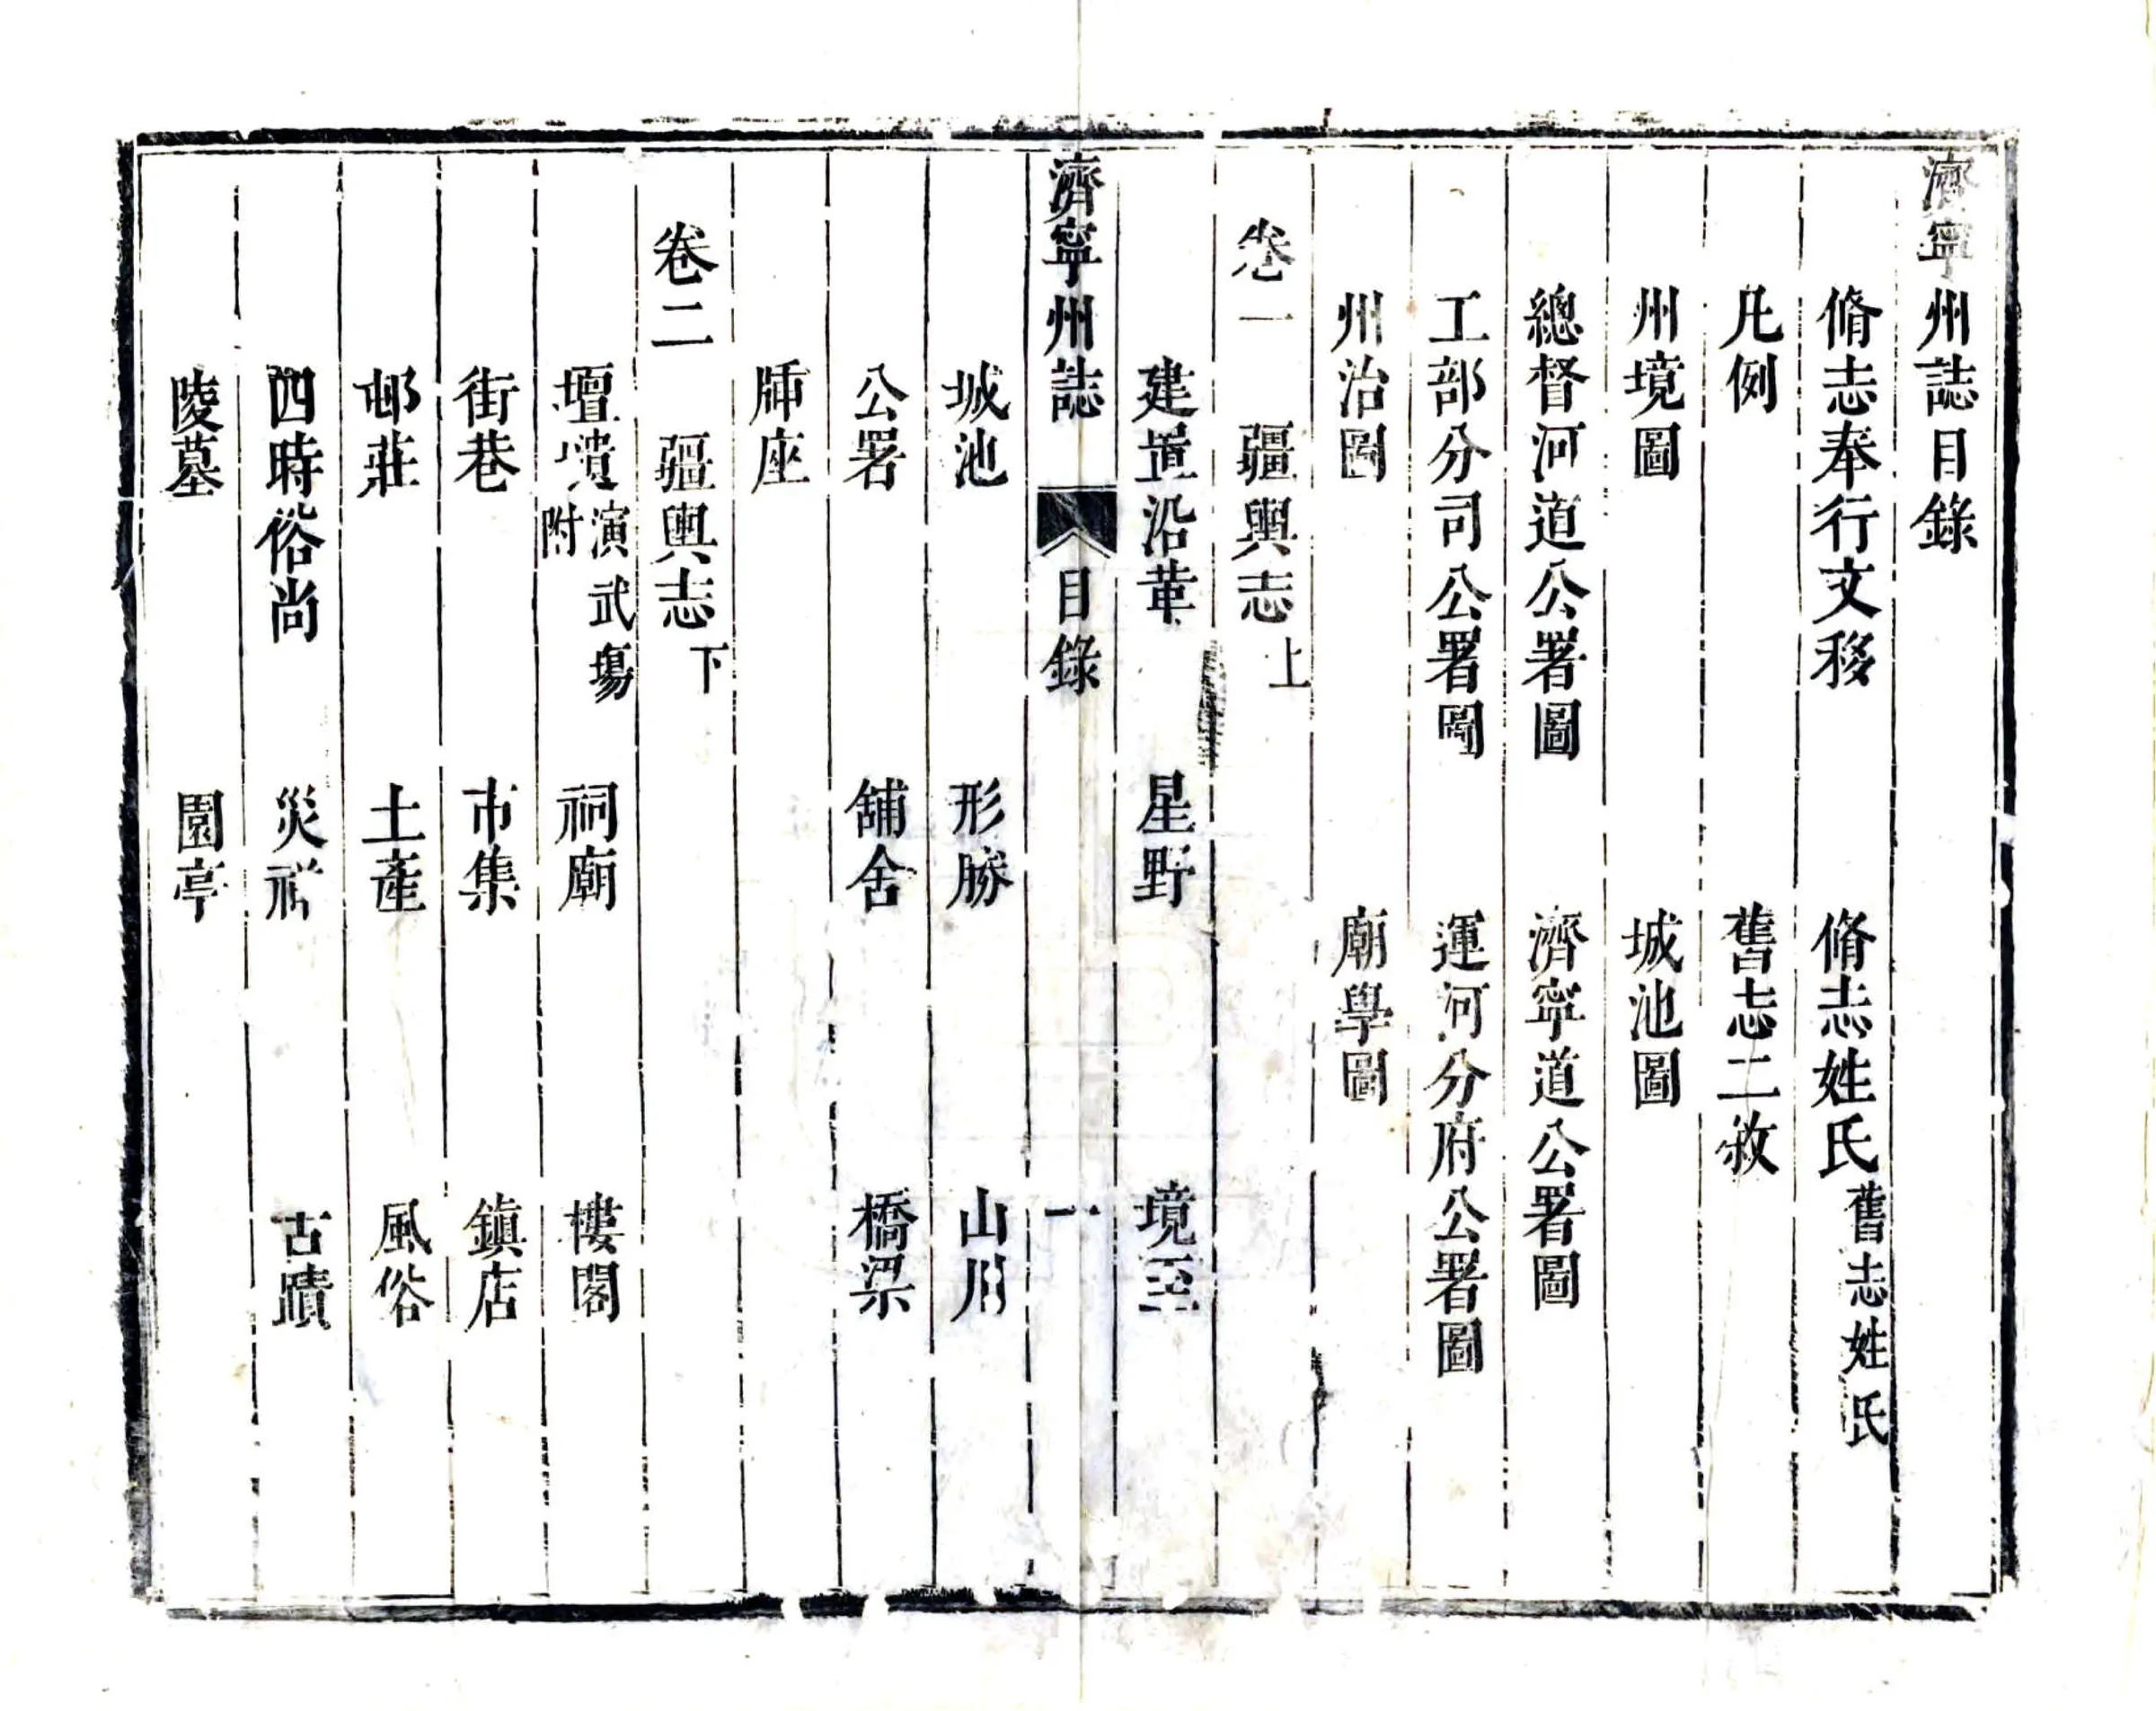 濟寧州誌目錄
脩志奉行文移　脩志姓氏 舊志姓氏
凡例　舊志二敘
州境圖　城池圖
總督河道公署圖　濟寧道公署圖
工部分司公署圖　運河分府公署圖
州治圖　廟學圖
卷一　疆輿志 上
建置沿革　星野　境至
濟寧州誌　目錄　一
城池　形勝　山川
公署　舖舍　橋梁
座
卷二　疆輿志 下
壇壝 演武場附　祠廟　樓閣
街巷　市集　鎮店
邨莊　土產　風俗
四時俗尚　災祥　古蹟
陵墓　園亭